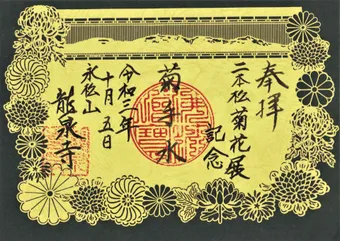 奉拝
二本松菊花展
記念
菊手水
令和三年
十月五日
永松山
龍泉寺